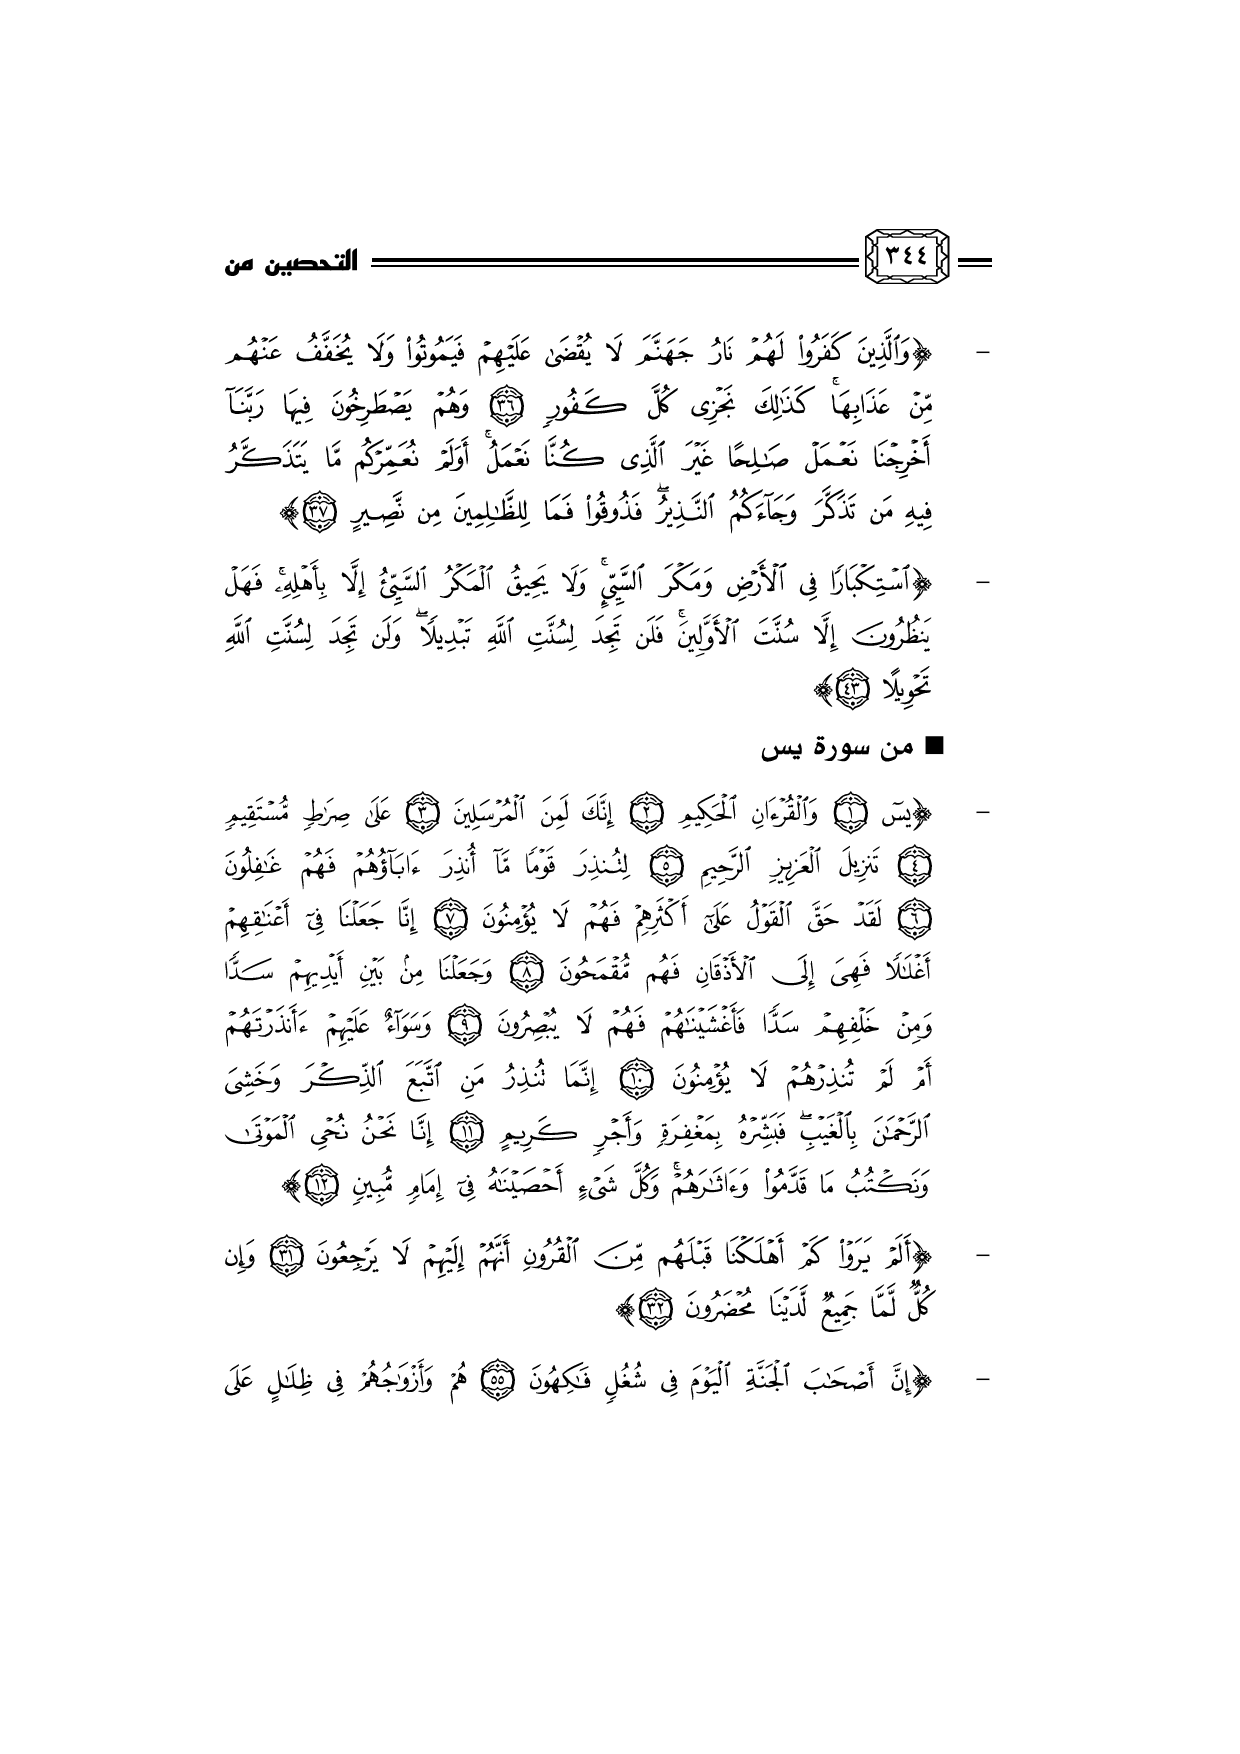 ٣٤٤ التحصين من
- ﴿وَٱلَّذِينَ كَفَرُوا۟ لَهُمْ نَارُ جَهَنَّمَ لَا يُقْضَىٰ عَلَيْهِمْ فَيَمُوتُوا۟ وَلَا يُخَفَّفُ عَنْهُم
مِّنْ عَذَابِهَا ۚ كَذَٰلِكَ نَجْزِى كُلَّ كَفُورٍ ٣٦ وَهُمْ يَصْطَرِخُونَ فِيهَا رَبَّنَآ
أَخْرِجْنَا نَعْمَلْ صَـٰلِحًا غَيْرَ ٱلَّذِى كُنَّا نَعْمَلُ ۚ أَوَلَمْ نُعَمِّرْكُم مَّا يَتَذَكَّرُ
فِيهِ مَن تَذَكَّرَ وَجَآءَكُمُ ٱلنَّذِيرُ ۖ فَذُوقُوا۟ فَمَا لِلظَّـٰلِمِينَ مِن نَّصِيرٍ ٣٧﴾
- ﴿ٱسْتِكْبَارًا فِى ٱلْأَرْضِ وَمَكْرَ ٱلسَّيِّئِ ۚ وَلَا يَحِيقُ ٱلْمَكْرُ ٱلسَّيِّئُ إِلَّا بِأَهْلِهِۦ ۚ فَهَلْ
يَنظُرُونَ إِلَّا سُنَّتَ ٱلْأَوَّلِينَ ۚ فَلَن تَجِدَ لِسُنَّتِ ٱللَّهِ تَبْدِيلًا ۖ وَلَن تَجِدَ لِسُنَّتِ ٱللَّهِ
تَحْوِيلًا ٤٣﴾
■ من سورة يس
- ﴿يسٓ ١ وَٱلْقُرْءَانِ ٱلْحَكِيمِ ٢ إِنَّكَ لَمِنَ ٱلْمُرْسَلِينَ ٣ عَلَىٰ صِرَٰطٍ مُّسْتَقِيمٍ
٤ تَنزِيلَ ٱلْعَزِيزِ ٱلرَّحِيمِ ٥ لِتُنذِرَ قَوْمًا مَّآ أُنذِرَ ءَابَآؤُهُمْ فَهُمْ غَـٰفِلُونَ
٦ لَقَدْ حَقَّ ٱلْقَوْلُ عَلَىٰٓ أَكْثَرِهِمْ فَهُمْ لَا يُؤْمِنُونَ ٧ إِنَّا جَعَلْنَا فِىٓ أَعْنَـٰقِهِمْ
أَغْلَـٰلًا فَهِىَ إِلَى ٱلْأَذْقَانِ فَهُم مُّقْمَحُونَ ٨ وَجَعَلْنَا مِنۢ بَيْنِ أَيْدِيهِمْ سَدًّا
وَمِنْ خَلْفِهِمْ سَدًّا فَأَغْشَيْنَـٰهُمْ فَهُمْ لَا يُبْصِرُونَ ٩ وَسَوَآءٌ عَلَيْهِمْ ءَأَنذَرْتَهُمْ
أَمْ لَمْ تُنذِرْهُمْ لَا يُؤْمِنُونَ ١٠ إِنَّمَا تُنذِرُ مَنِ ٱتَّبَعَ ٱلذِّكْرَ وَخَشِىَ
ٱلرَّحْمَـٰنَ بِٱلْغَيْبِ ۖ فَبَشِّرْهُ بِمَغْفِرَةٍ وَأَجْرٍ كَرِيمٍ ١١ إِنَّا نَحْنُ نُحْىِ ٱلْمَوْتَىٰ
وَنَكْتُبُ مَا قَدَّمُوا۟ وَءَاثَـٰرَهُمْ ۚ وَكُلَّ شَىْءٍ أَحْصَيْنَـٰهُ فِىٓ إِمَامٍ مُّبِينٍ ١٢﴾
- ﴿أَلَمْ يَرَوْا۟ كَمْ أَهْلَكْنَا قَبْلَهُم مِّنَ ٱلْقُرُونِ أَنَّهُمْ إِلَيْهِمْ لَا يَرْجِعُونَ ٣١ وَإِن
كُلٌّ لَّمَّا جَمِيعٌ لَّدَيْنَا مُحْضَرُونَ ٣٢﴾
- ﴿إِنَّ أَصْحَـٰبَ ٱلْجَنَّةِ ٱلْيَوْمَ فِى شُغُلٍ فَـٰكِهُونَ ٥٥ هُمْ وَأَزْوَٰجُهُمْ فِى ظِلَـٰلٍ عَلَى